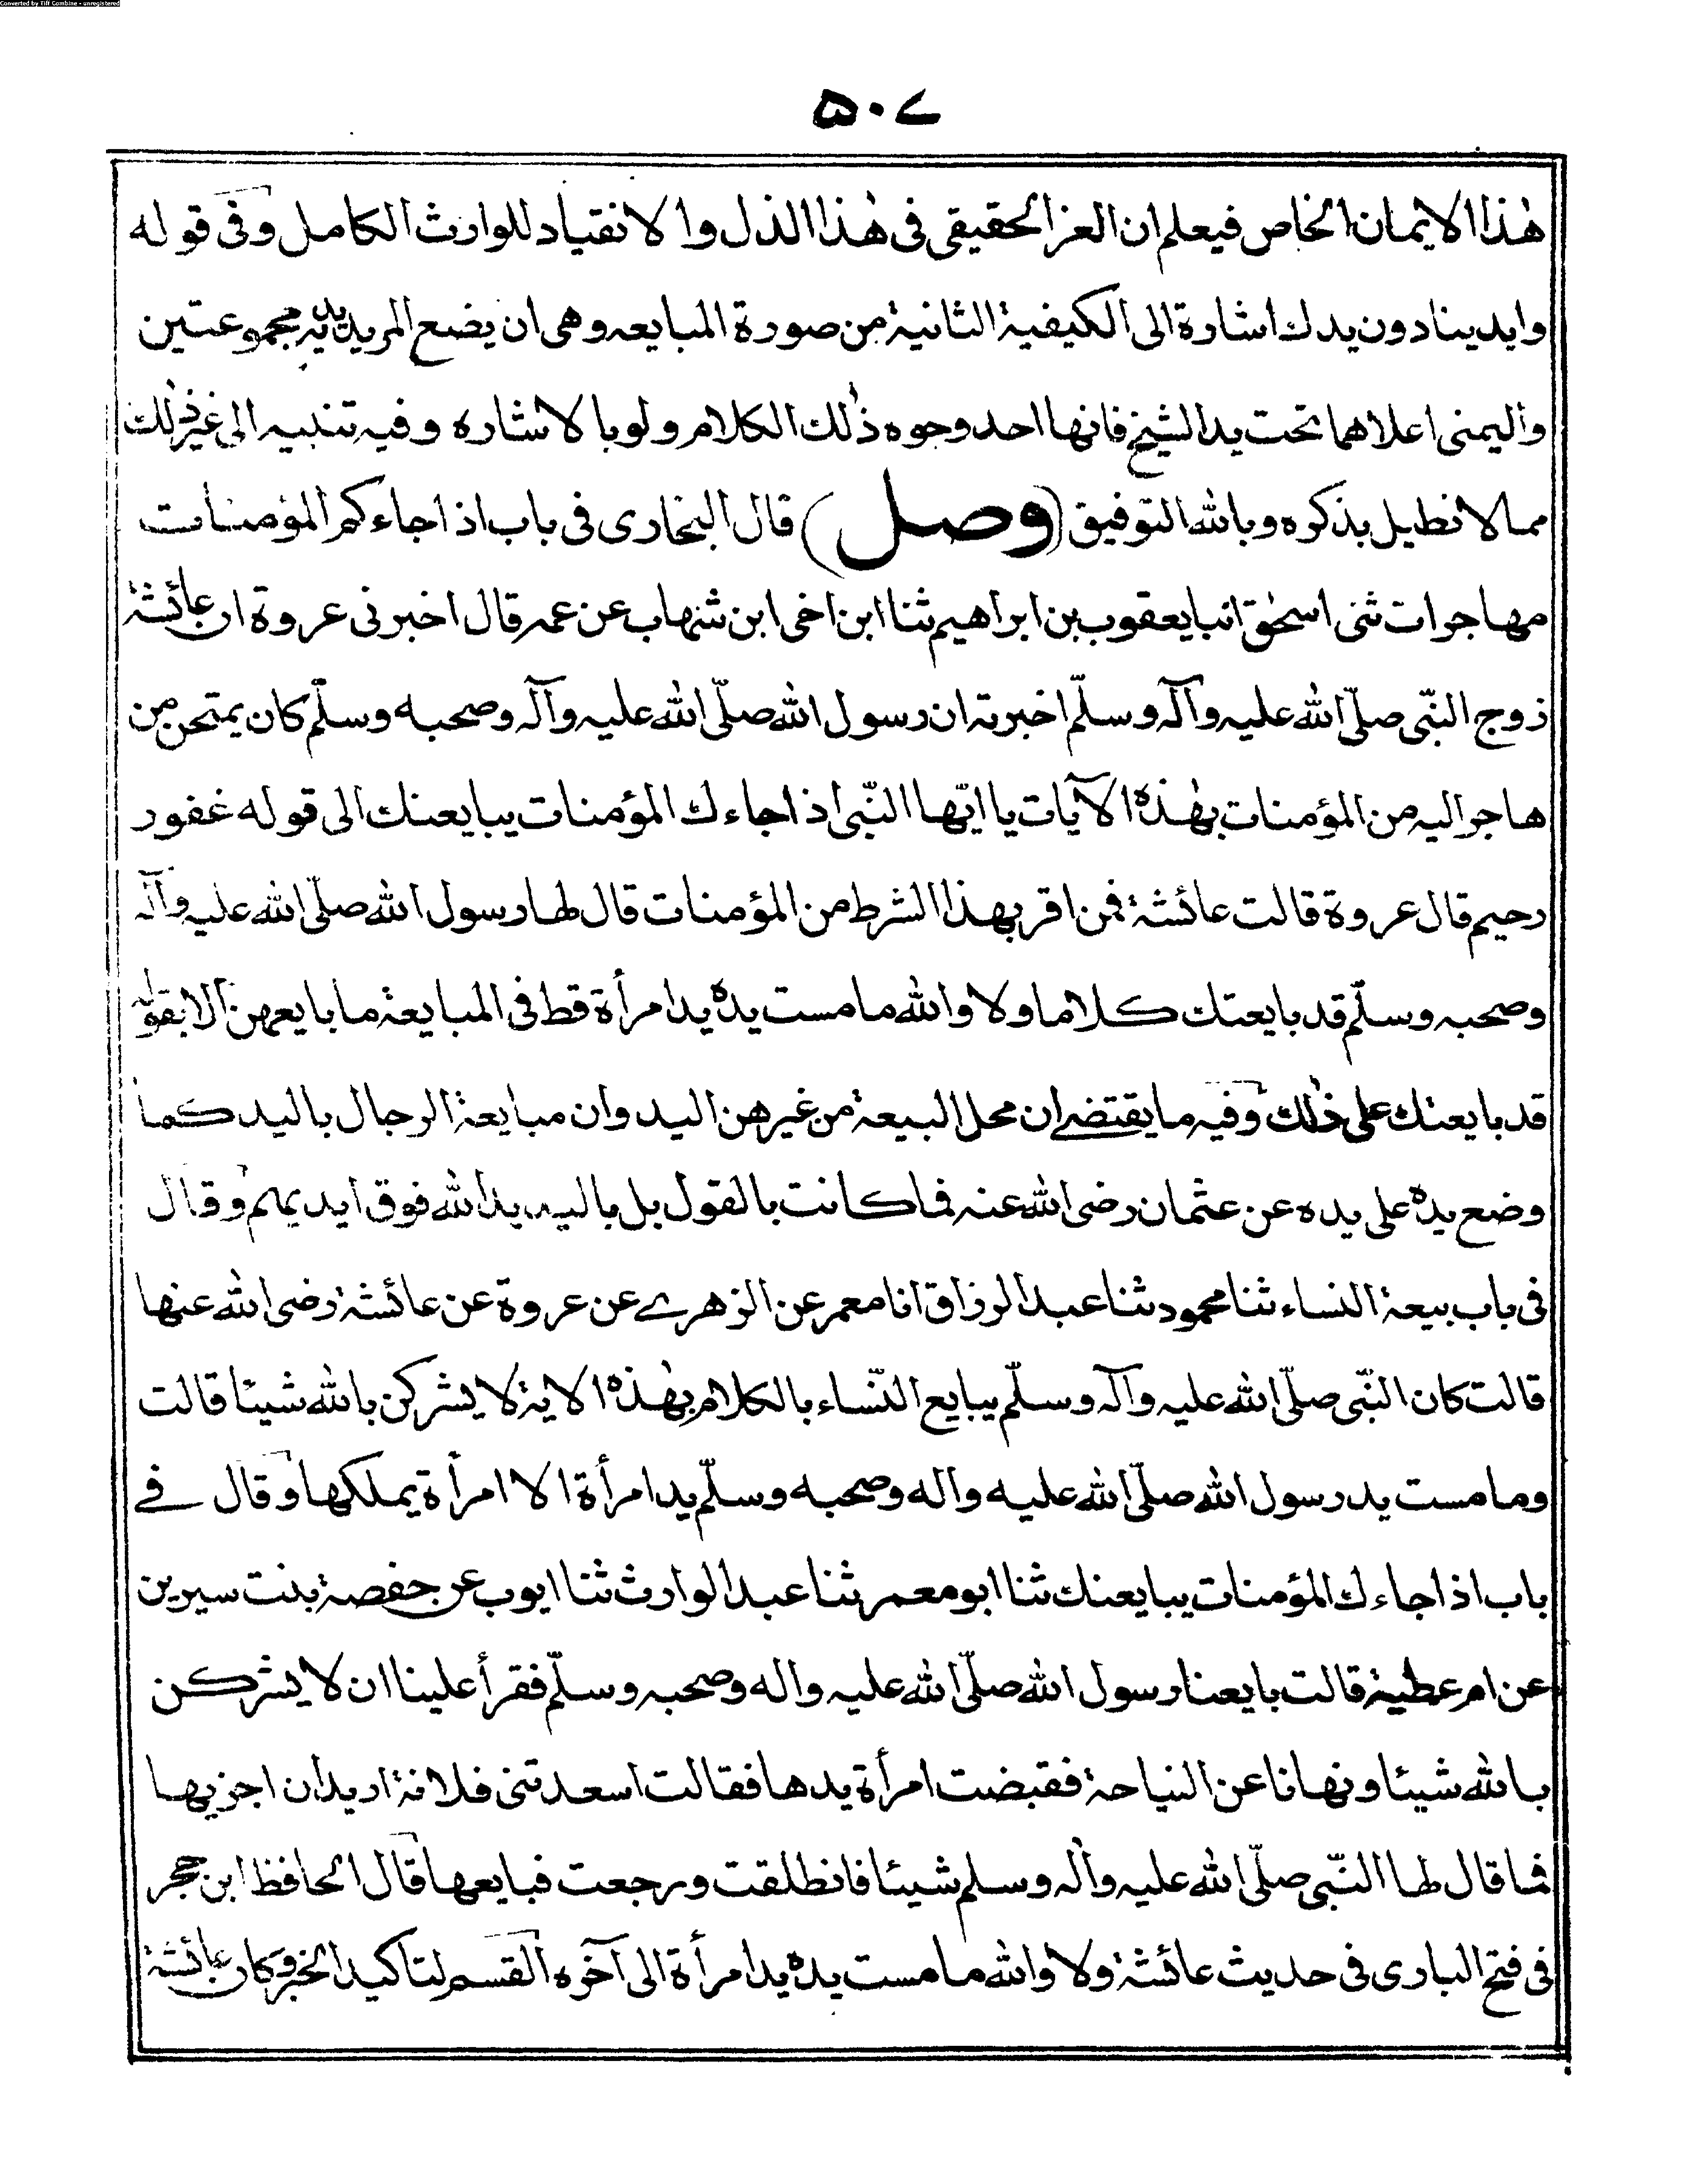 Converted by Tiff Combine - unregistered
۵۰۷
هٰذا الايمان الخاص فيعلم ان العز الحقيقى فى هٰذا الذل والانقياد للوارث الكامل وفى قوله
وايدينا دون يدك اشارة الى الكيفية الثانية من صورة المبايعه وهى ان يضع المريد يديه مجموعتين
واليمنى اعلاهما تحت يد الشيخ فانها احد وجوه ذٰلك الكلام ولو بالاشاره وفيه تنبيه الى غير ذٰلك
مما لا نطيل بذكره وبالله التوفيق (وصل) قال البخارى فى باب اذا جاءكم المؤمنات
مهاجرات ثنى اسحٰق انبا يعقوب بن ابراهيم ثنا ابن اخى ابن شهاب عن عمه قال اخبرنى عروة ان عائشة
زوج النبّى صلّى الله عليه وآله وسلّم اخبرته ان رسول الله صلّى الله عليه وآله وصحبه وسلّم كان يمتحن من
هاجر اليه من المؤمنات بهٰذه الآيات يا ايّها النبّى اذا جاءك المؤمنات يبايعنك الى قوله غفور
رحيم قال عروة قالت عائشة فمن اقر بهذا الشرط من المؤمنات قال لها رسول الله صلّى الله عليه وآله
وصحبه وسلّم قد بايعتك كلاما ولا والله ما مست يده يد امرأة قط فى المبايعة ما بايعهن الا بقوله
قد بايعتك على ذٰلك وفيه ما يقتضے ان محل البيعة من غيرهن اليد وان مبايعة الرجال باليد كما
وضع يده على يده عن عثمان رضى الله عنه فما كانت بالقول بل باليد يد الله فوق ايديهم وقال
فى باب بيعة النساء ثنا محمود ثنا عبد الرزاق انا معمر عن الزهرے عن عروة عن عائشة رضى الله عنها
قالت كان النبّى صلّى الله عليه وآله وسلّم يبايع النّساء بالكلام بهٰذه الاية لا يشركن بالله شيئا قالت
وما مست يد رسول الله صلّى الله عليه واله وصحبه وسلّم يد امرأة الا امرأة يملكها وقال فے
باب اذا جاءك المؤمنات يبايعنك ثنا ابو معمر ثنا عبد الوارث ثنا ايوب عن حفصة بنت سيرين
عن ام عطية قالت بايعنا رسول الله صلّى الله عليه واله وصحبه وسلّم فقرأ علينا ان لا يشركن
بالله شيئا ونهانا عن النياحة فقبضت امرأة يدها فقالت اسعدتنى فلانة اريد ان اجزيها
فما قال لها النبّى صلّى الله عليه واٰله وسلم شيئا فانطلقت ورجعت فبايعها قال الحافظ ابن حجر
فى فتح البارى فى حديث عائشة ولا والله ما مست يده يد امرأة الى آخره القسم لتاكيد الخبر وكان عائشة